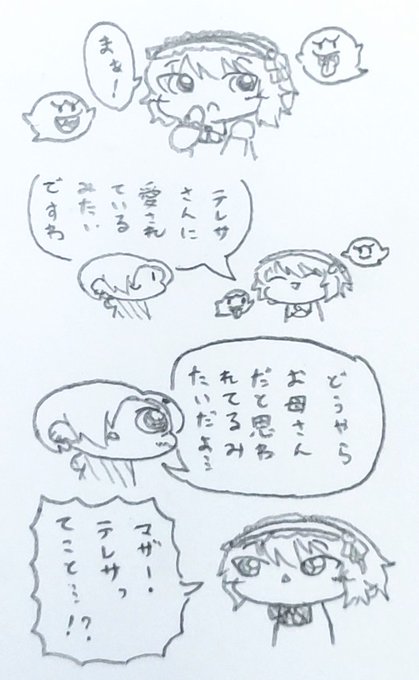 まぁ!
テレサ
さんに
愛され
ている
みたい
ですわ
どうやら
お母さん
だと思わ
れてるみ
たいだよ…
マザー・
テレサっ
てこと…!?